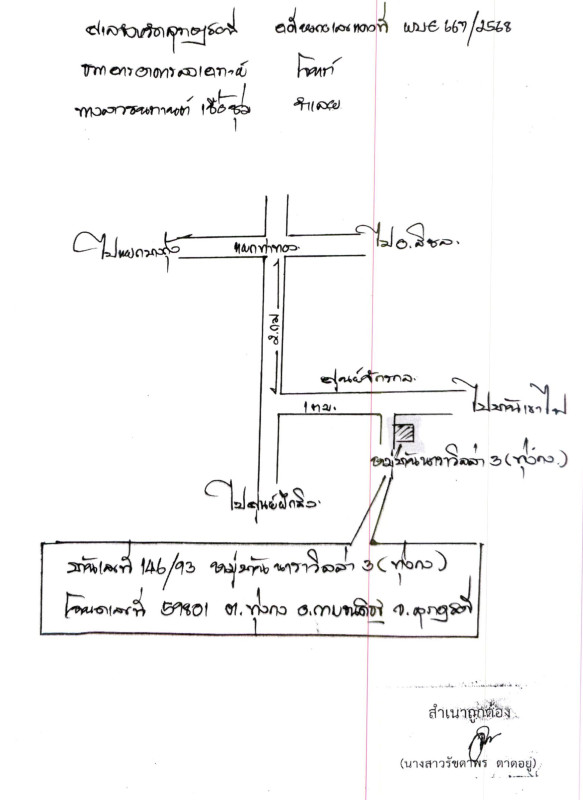 ศาลจังหวัดสุราษฎร์ธานี คดีหมายเลขดำที่ ผบE 667/2568
ธนาคารอาคารสงเคราะห์ โจทก์
นางสาวชนกานต์ เชื้อชุ่ม จำเลย
ไปแยกบางกุ้ง
แยกท่าทอง
ไป อ.สิชล
2 กม
ศูนย์จักรกล
1 กม.
ไปบ้านเขา
หมู่บ้านนาราวิลล่า 3 (ทุ่งกง)
ไปศูนย์ฝึก
บ้านเลขที่ 146/93 หมู่บ้านนาราวิลล่า 3 (ทุ่งกง)
โฉนดเลขที่ 59801 ต.ทุ่งกง อ.กาญจนดิษฐ์ จ.สุราษฎร์ธานี
สำเนาถูกต้อง
(นางสาวรัชดาพร ตาดอยู่)